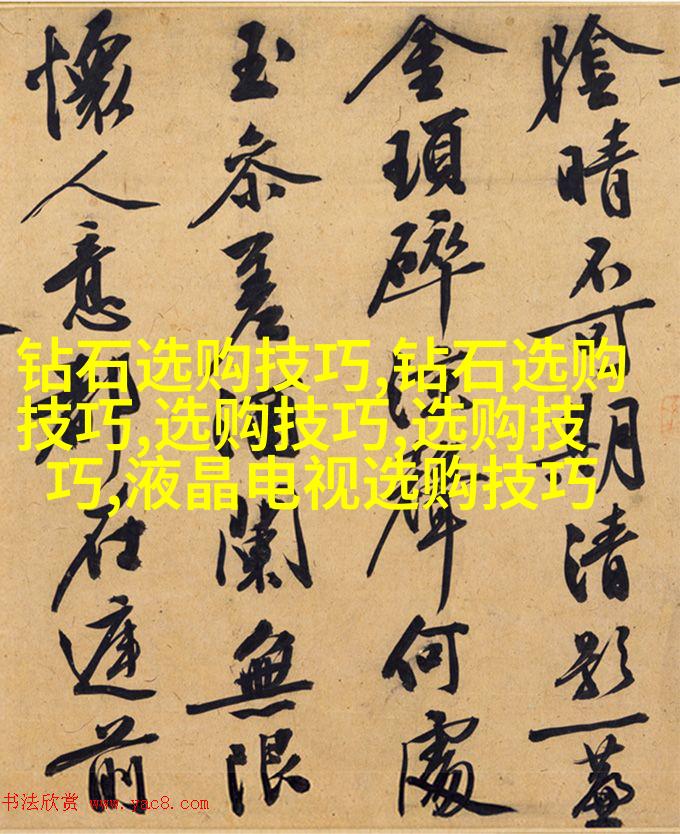 陰晴不可期清影一簾
金瑣碎溪聲何處
玉參差闌無限
懷人意都在前
钻石选购技巧,钻石选购
技巧,选购技巧,选购技
巧,液晶电视选购技巧
书法欣赏 www.yac8.com